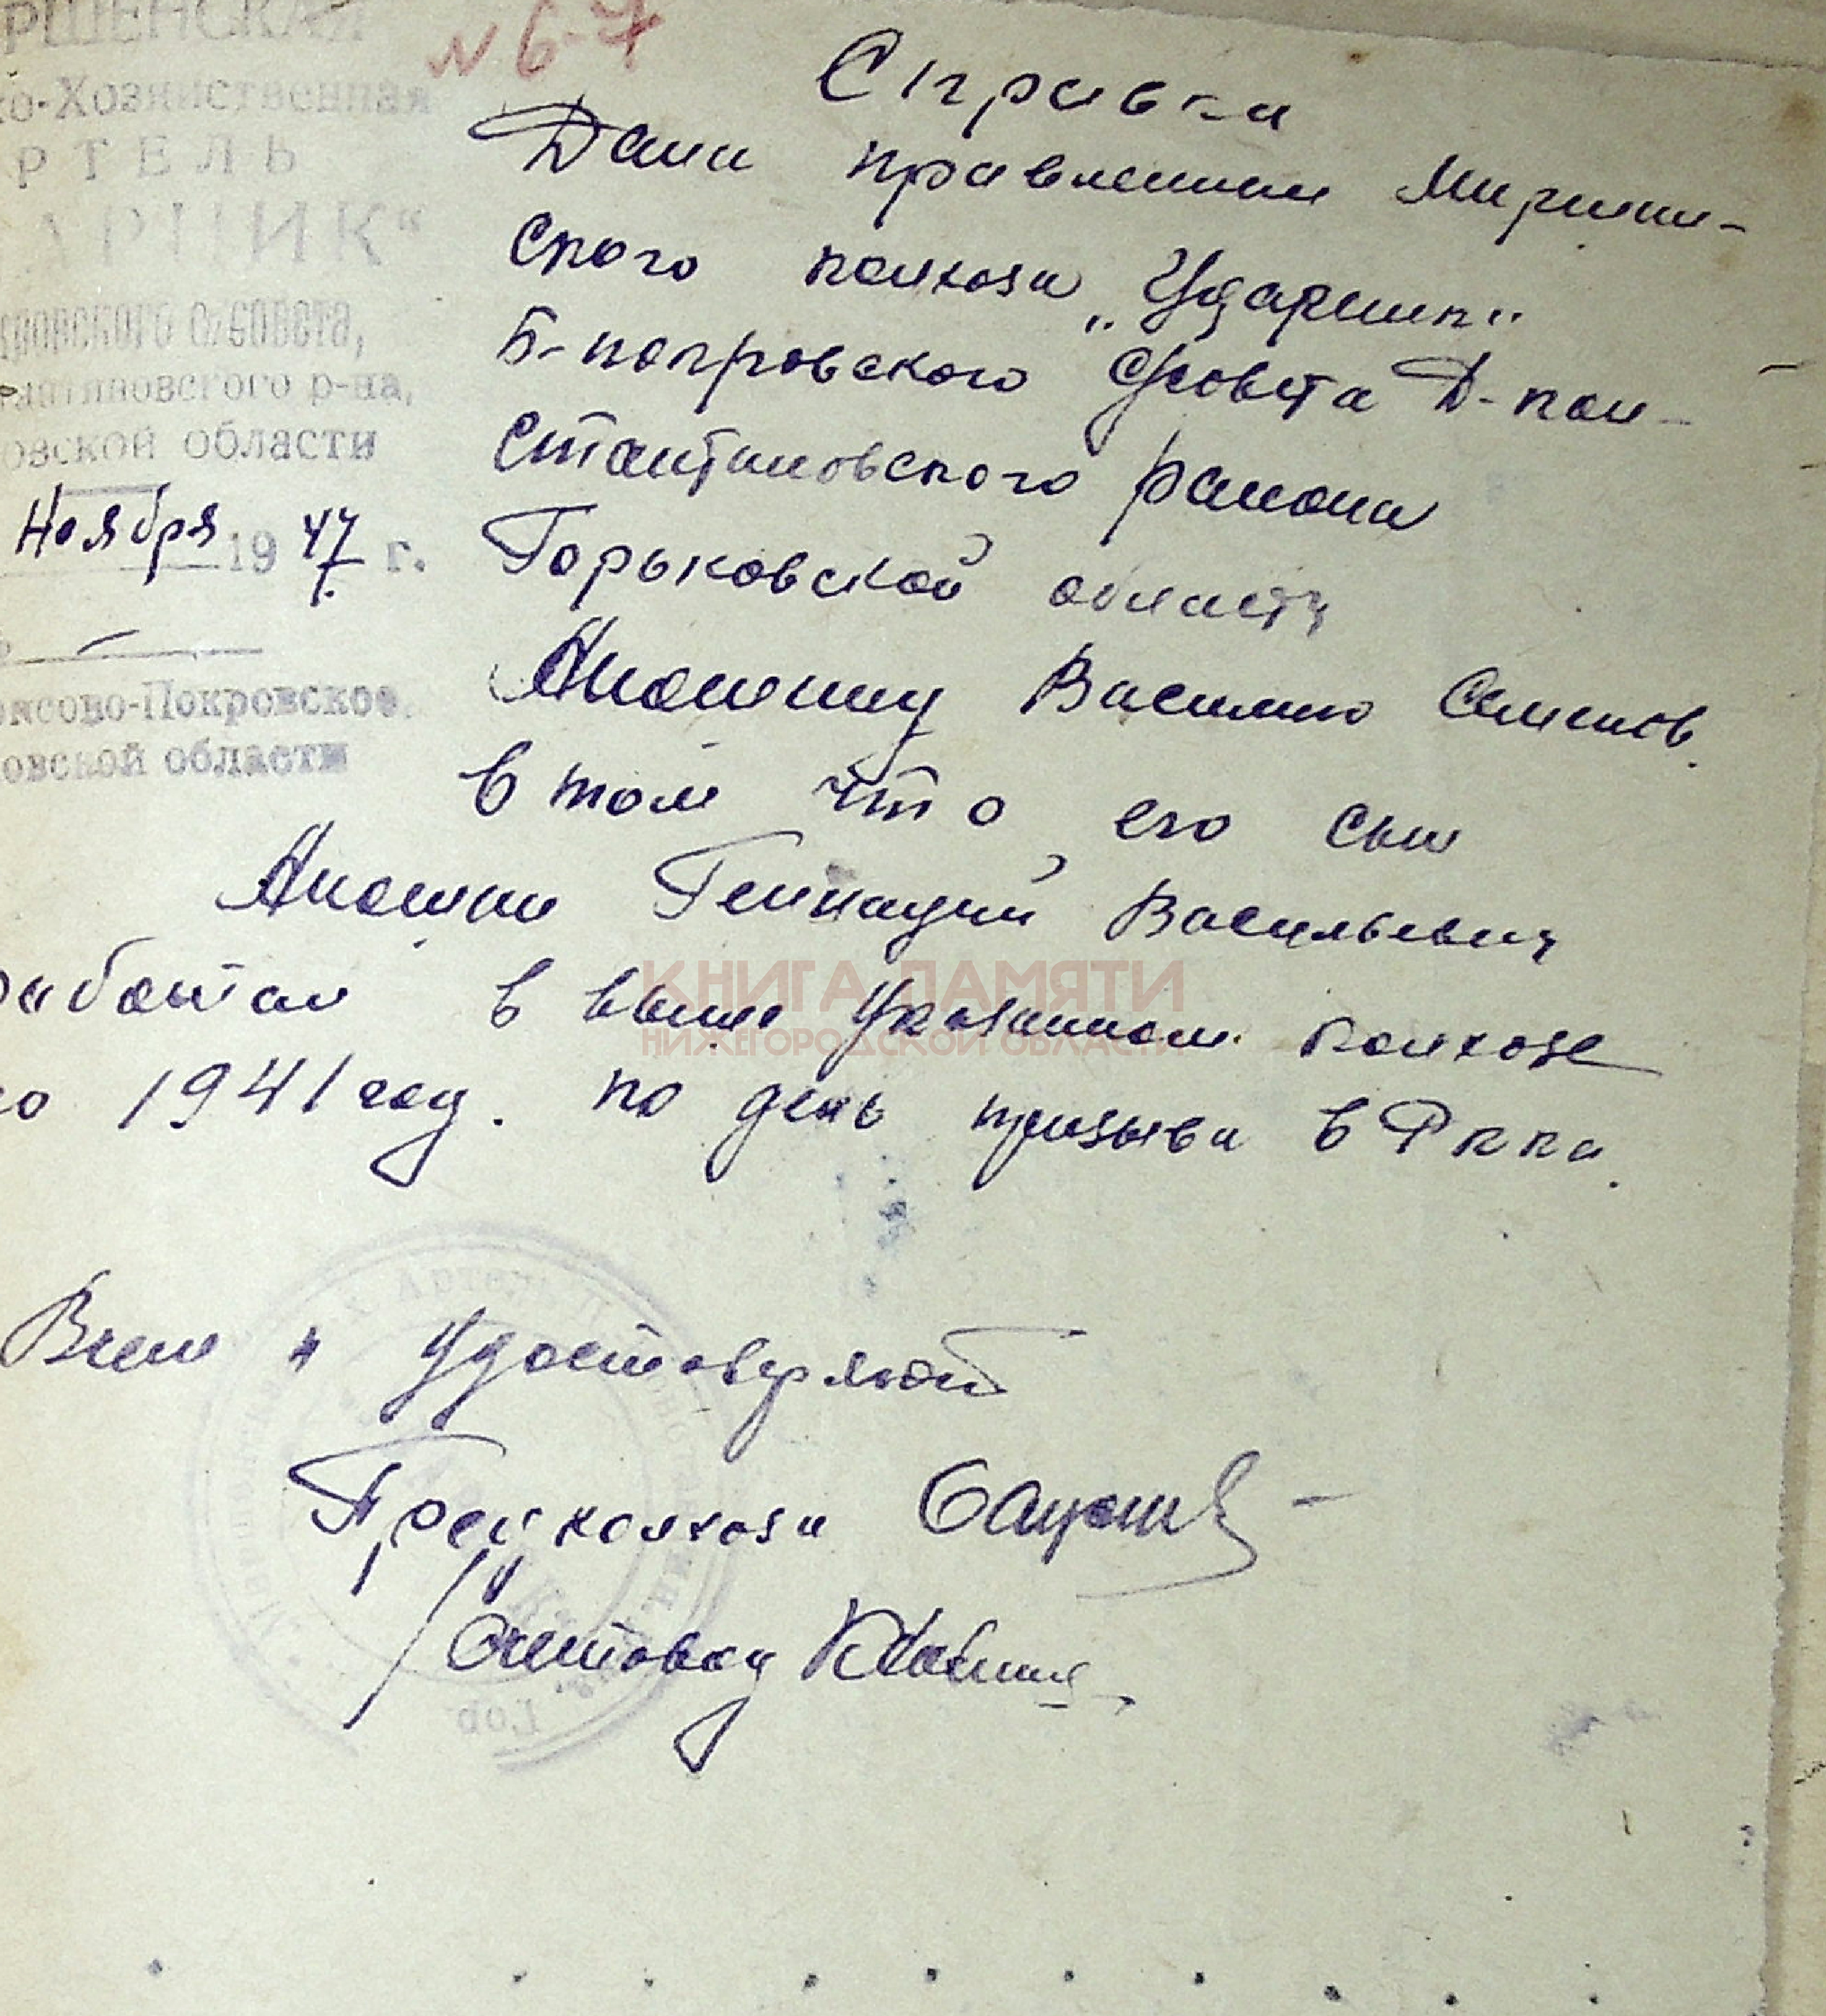 РШЕНСКАЯ
№ 6-7
ко-Хозяйственная
РТЕЛЬ
АРНИК"
с/совета,
антиновсгого р-на,
овской области
Ноября 1947 г.
Покровское
овской области
Справка
Дана правлением Мирши-
ского колхоза "Ударник"
Б-покровского с/совета Д-кон-
стантиновского района
Горьковской области
Аношину Василию Семенов.
в том что его сын
Аношин Геннадий Васильевич
работал в выше указанном колхозе
по 1941 год. по день призыва в Ркка.
КНИГА ПАМЯТИ
НИЖЕГОРОДСКОЙ ОБЛАСТИ
В чем и удостоверяют
Пред колхоза
Счетовод